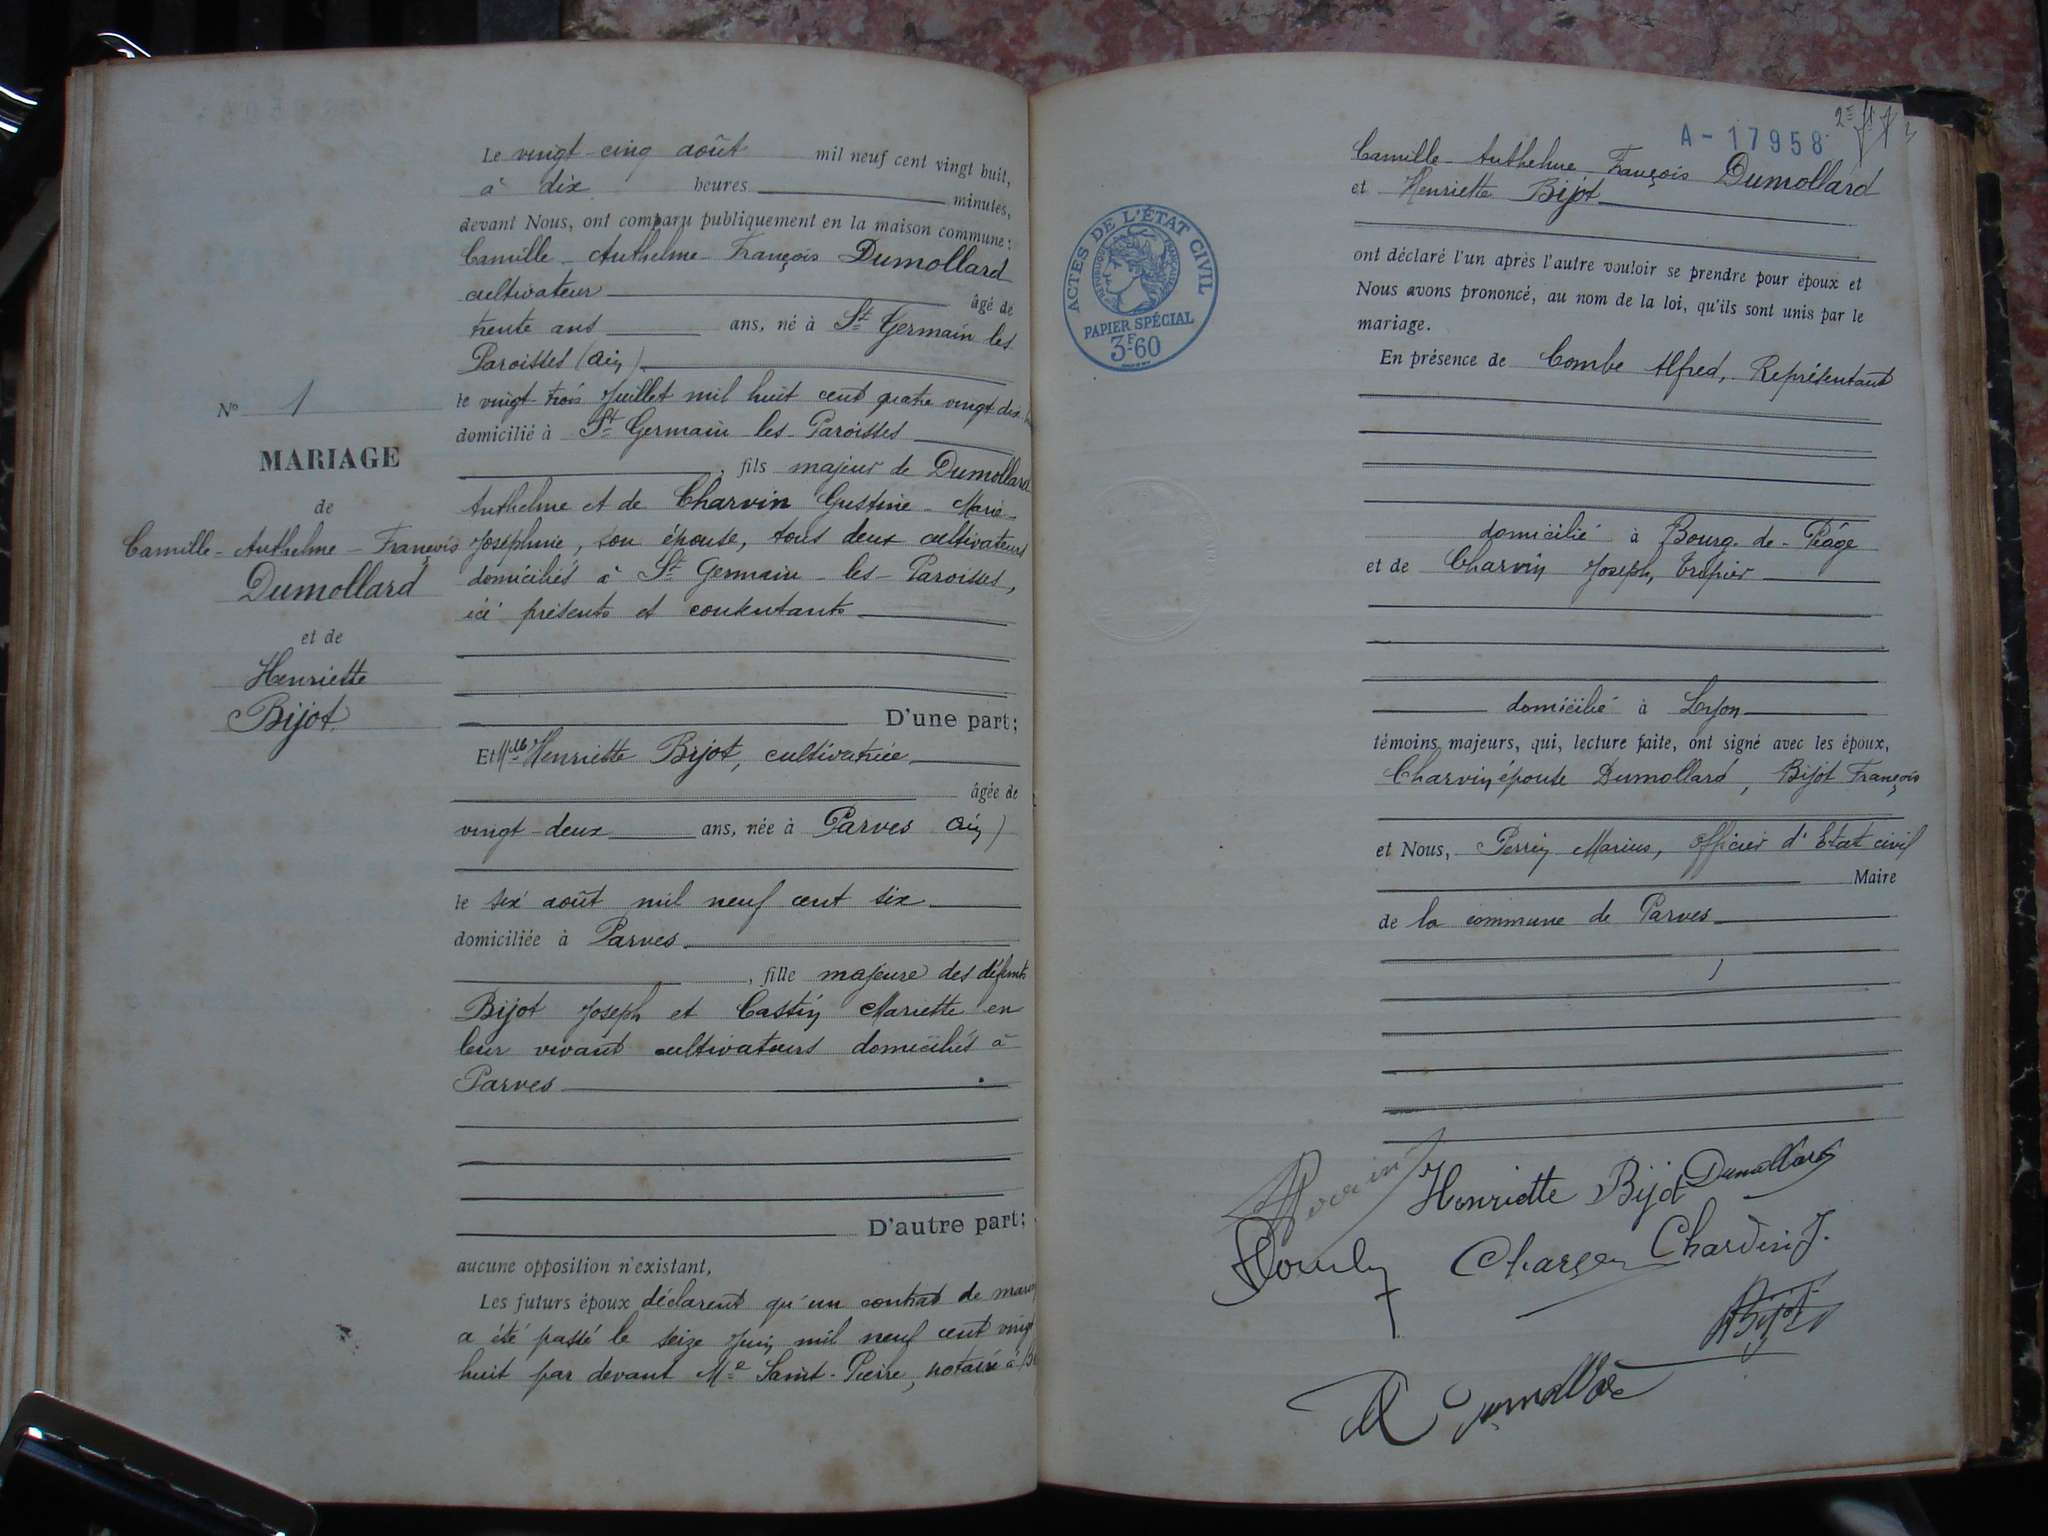 Le vingt-cinq août mil neuf cent vingt huit,
à dix heures minutes,
devant Nous, ont comparu publiquement en la maison commune:
Camille-Anthelme-François Dumollard
cultivateur âgé de
trente ans ans, né à St Germain les
Paroisses (Ain)
le vingt-trois Juillet mil huit cent quatre vingt dix
domicilié à St Germain les-Paroisses
, fils majeur de Dumollard
Anthelme et de Charvin Gustine-Marie-
Joséphine, son épouse, tous deux cultivateurs
domiciliés à St Germain-les-Paroisses,
ici présents et consentants
D'une part;
Et Mlle Henriette Bijot, cultivatrice
âgée de
vingt-deux ans, née à Parves Ain)
le six août mil neuf cent six
domiciliée à Parves
, fille majeure des défunts
Bijot Joseph et Castin Mariette en
leur vivant cultivateurs domiciliés à
Parves
D'autre part;
aucune opposition n'existant,
Les futurs époux déclarent qu'un contrat de
a été passé le seize Juin mil neuf cent vingt
huit par devant Me Saint-Pierre, notaire à
No 1
MARIAGE
de
Camille-Anthelme-François
Dumollard
et de
Henriette
Bijot
A-17958
2E
Camille-Anthelme François Dumollard
et Henriette Bijot
ACTES DE L'ÉTAT CIVIL
RÉPUBLIQUE FRANÇAISE
PAPIER SPÉCIAL
3F60
ont déclaré l'un après l'autre vouloir se prendre pour époux et
Nous avons prononcé, au nom de la loi, qu'ils sont unis par le
mariage.
En présence de Combe Alfred, Représentant
domicilié à Bourg-de-Péage
et de Charvin Joseph, Tripier
domicilié à Lyon
témoins majeurs, qui, lecture faite, ont signé avec les époux,
Charvin épouse Dumollard, Bijot François
et Nous, Perrin Marius, officier d'Etat civil
Maire
de la commune de Parves
Henriette Bijot Dumollard
Charvin J.
Bijot
Dumollard